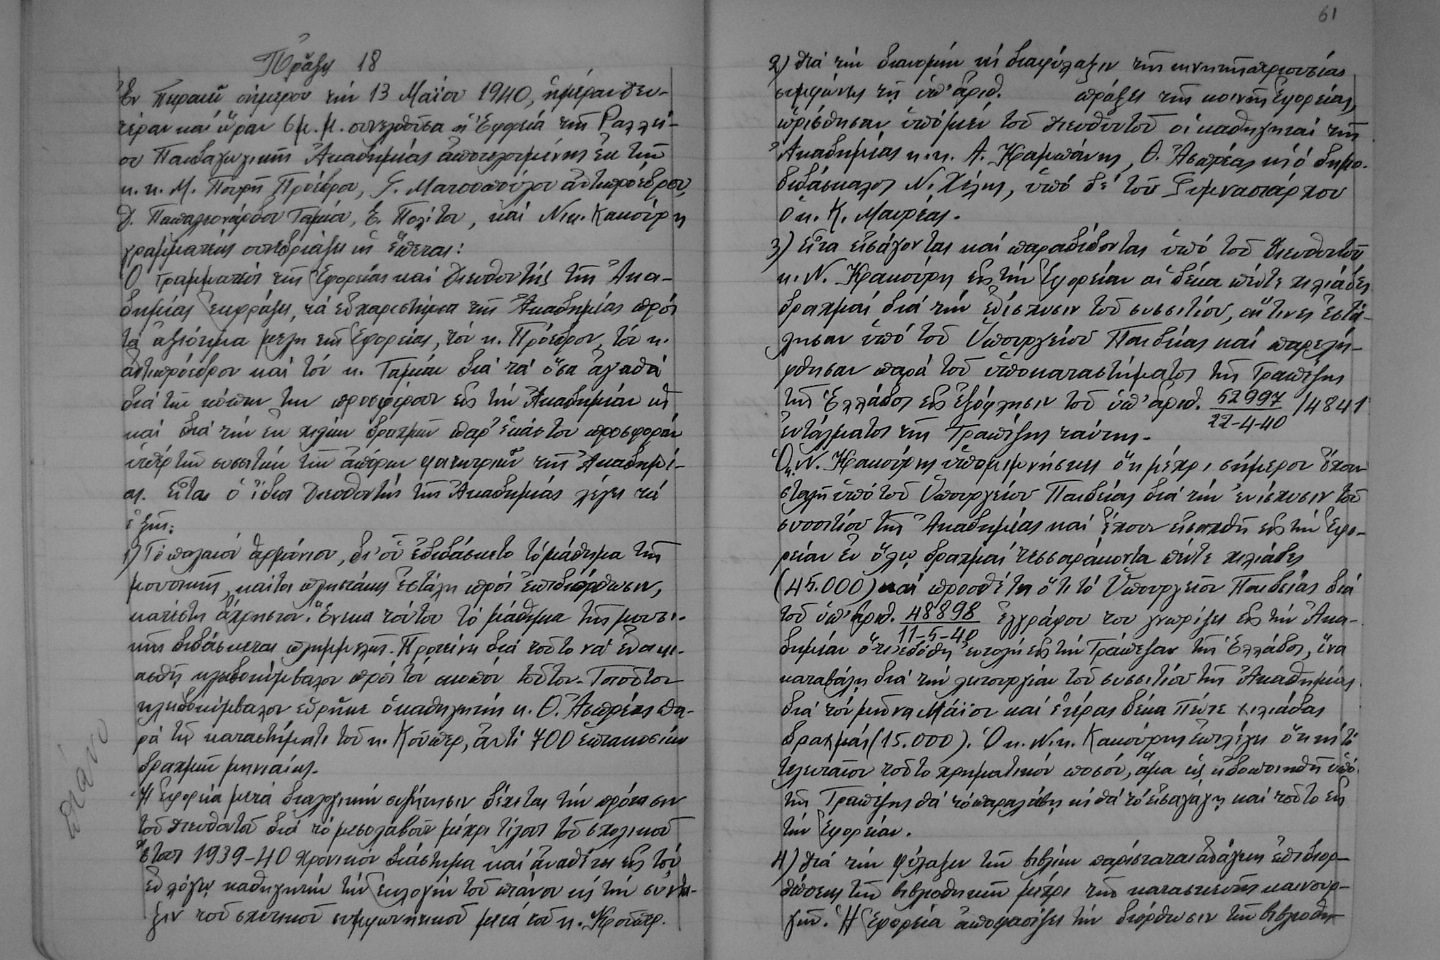 Πρᾶξις 18
Ἐν Πειραιεῖ σήμερον τὴν 13 Μαΐου 1940, ἡμέραν Δευ-
τέραν καὶ ὥραν 6 μ.μ. συνελθοῦσα ἡ Ἐφορεία τῆς Ραλλεί-
ου Παιδαγωγικῆς Ἀκαδημίας ἀποτελουμένης ἐκ τῶν
κ.κ. Μ. Πρόεδρου, Γ. Ματσοπούλου ἀντιπροέδρου,
Δ. Παπαλεονάρδου Ταμίου, Ε. Πολίτου, καὶ Νικ. Κακούρη
γραμματέως συνεδριάζει ὡς ἕπεται:
Ὁ Γραμματεύς τῆς Ἐφορείας καὶ Διευθυντής τῆς Ἀκα-
δημίας ἐκφράζει τὰ εὐχαριστήρια τῆς Ἀκαδημίας πρός
τὰ ἀξιότιμα μέλη τῆς Ἐφορείας, τόν κ. Πρόεδρον, τόν κ.
ἀντιπρόεδρον καὶ τόν κ. Ταμίαν διά τά ὅσα ἀγαθά
διά τῶν κόπων των προσφέρουν εἰς τὴν Ἀκαδημίαν ὡς
καί διά τὴν ἐκ χιλίων δραχμῶν παρ' ἑκάστου προσφοράν
ὑπέρ τῶν συσσιτίων τῶν ἀπόρων φοιτητριῶν τῆς Ἀκαδημί-
ας. Εἶτα ὁ ἴδιος Διευθυντής τῆς Ἀκαδημίας λέγει τά
ἑξῆς:
1) Τό παλαιόν ἁρμόνιον, δι' οὗ ἐδιδάσκετο τό μάθημα τῆς
μουσικῆς, καίτοι πλειστάκις ἐστάλη πρός ἐπιδιόρθωσιν,
κατέστη ἄχρηστον. Ἕνεκα τούτου τό μάθημα τῆς μουσι-
κῆς διδάσκεται πλημμελῶς. Προτείνει διά τοῦτο νά ἐνοικι-
ασθῇ κλειδοκύμβαλον πρός τόν σκοπόν τοῦτον. Τοιοῦτον
κλειδοκύμβαλον εὑρῆκε ὁ καθηγητής κ. Θ. Ἀσπρέας πα-
ρά τῷ καταστήματι τοῦ κ. Κρούπερ, ἀντί 700 ἑπτακοσίων
δραχμῶν μηνιαίως.
Ἡ Ἐφορεία μετά διαλογικήν συζήτησιν δέχεται τήν πρότασιν
τοῦ Διευθυντοῦ διά τό μεσολαβοῦν μέχρι τέλους τοῦ σχολικοῦ
ἔτους 1939-40 χρονικόν διάστημα καί ἀναθέτει εἰς τόν
ἐν λόγῳ καθηγητήν τήν ἐκλογήν τοῦ πιάνου ὡς τήν σύντα-
ξιν τοῦ σχετικοῦ συμφωνητικοῦ μετά τοῦ κ. Κρούπερ.
πιάνο
61
2) Διά τήν διανομήν καί διαφύλαξιν τῆς κινητῆς περιουσίας
συμφώνως τῇ ὑπ' ἀριθ. πράξει τῆς κοινῆς Ἐφορείας,
ὡρίσθησαν ὑπό μέν τοῦ Διευθυντοῦ οἱ καθηγηταί τῆς
Ἀκαδημίας κ.κ. Α. Κραμπάνης, Θ. Ἀσπρέας καί ὁ δημο-
διδάσκαλος Ν. Χέλης, ὑπό δέ τοῦ Γυμνασιάρχου
ὁ κ. Κ. Μαυρέας.
3) Εἶτα εἰσάγονται καί παραδίδονται ὑπό τοῦ Διευθυντοῦ
κ. Ν. Κακούρη εἰς τήν Ἐφορείαν αἱ δέκα πέντε χιλιάδες
δραχμαί διά τήν ἐνίσχυσιν τοῦ συσσιτίου, αἵτινες ἐστά-
λησαν ὑπό τοῦ Ὑπουργείου Παιδείας καί παρελή-
φθησαν παρά τοῦ ὑποκαταστήματος τῆς Τραπέζης
τῆς Ἑλλάδος εἰς ἐξόφλησιν τοῦ ὑπ' ἀριθ. 52997/22-4-40 /4841
ἐντάλματος τῆς Τραπέζης ταύτης.
Ὁ κ. Ν. Κακούρης ὑπομιμνήσκει ὅτι μέχρι σήμερον ἔχουν
σταλῆ ὑπό τοῦ Ὑπουργείου Παιδείας διά τήν ἐνίσχυσιν τοῦ
συσσιτίου τῆς Ἀκαδημίας καί ἔχουν εἰσαχθῆ εἰς τήν Ἐφο-
ρείαν ἐν ὅλῳ δραχμαί τεσσαράκοντα πέντε χιλιάδες
(45.000) καί προσθέτει ὅτι τό Ὑπουργεῖον Παιδείας διά
τοῦ ὑπ' ἀριθ. 48898/11-5-40 ἐγγράφου του γνωρίζει εἰς τήν Ἀκα-
δημίαν ὅτι ἐδόθη ἐντολή εἰς τήν Τράπεζαν τῆς Ἑλλάδος, ἵνα
καταβάλῃ διά τήν λειτουργίαν τοῦ συσσιτίου τῆς Ἀκαδημίας
διά τόν μῆνα Μάϊον καί ἑτέρας δέκα πέντε χιλιάδας
δραχμάς (15.000). Ὁ κ. Νικ. Κακούρης ἐπιλέγει ὅτι καί τό
τελευταῖον τοῦτο χρηματικόν ποσόν, ἅμα ὡς εἰδοποιηθῇ ὑπό
τῆς Τραπέζης θά τό παραλάβῃ καί θά τό εἰσαγάγῃ καί τοῦτο εἰς
τήν Ἐφορείαν.
4) Διά τήν φύλαξιν τῶν βιβλίων παρίσταται ἀνάγκη ἐπιδιορ-
θώσεως τῶν βιβλιοθηκῶν μέχρι τῆς κατασκευῆς καινουρ-
γῶν. Ἡ Ἐφορεία ἀποφασίζει τήν διόρθωσιν τῶν βιβλιοθη-